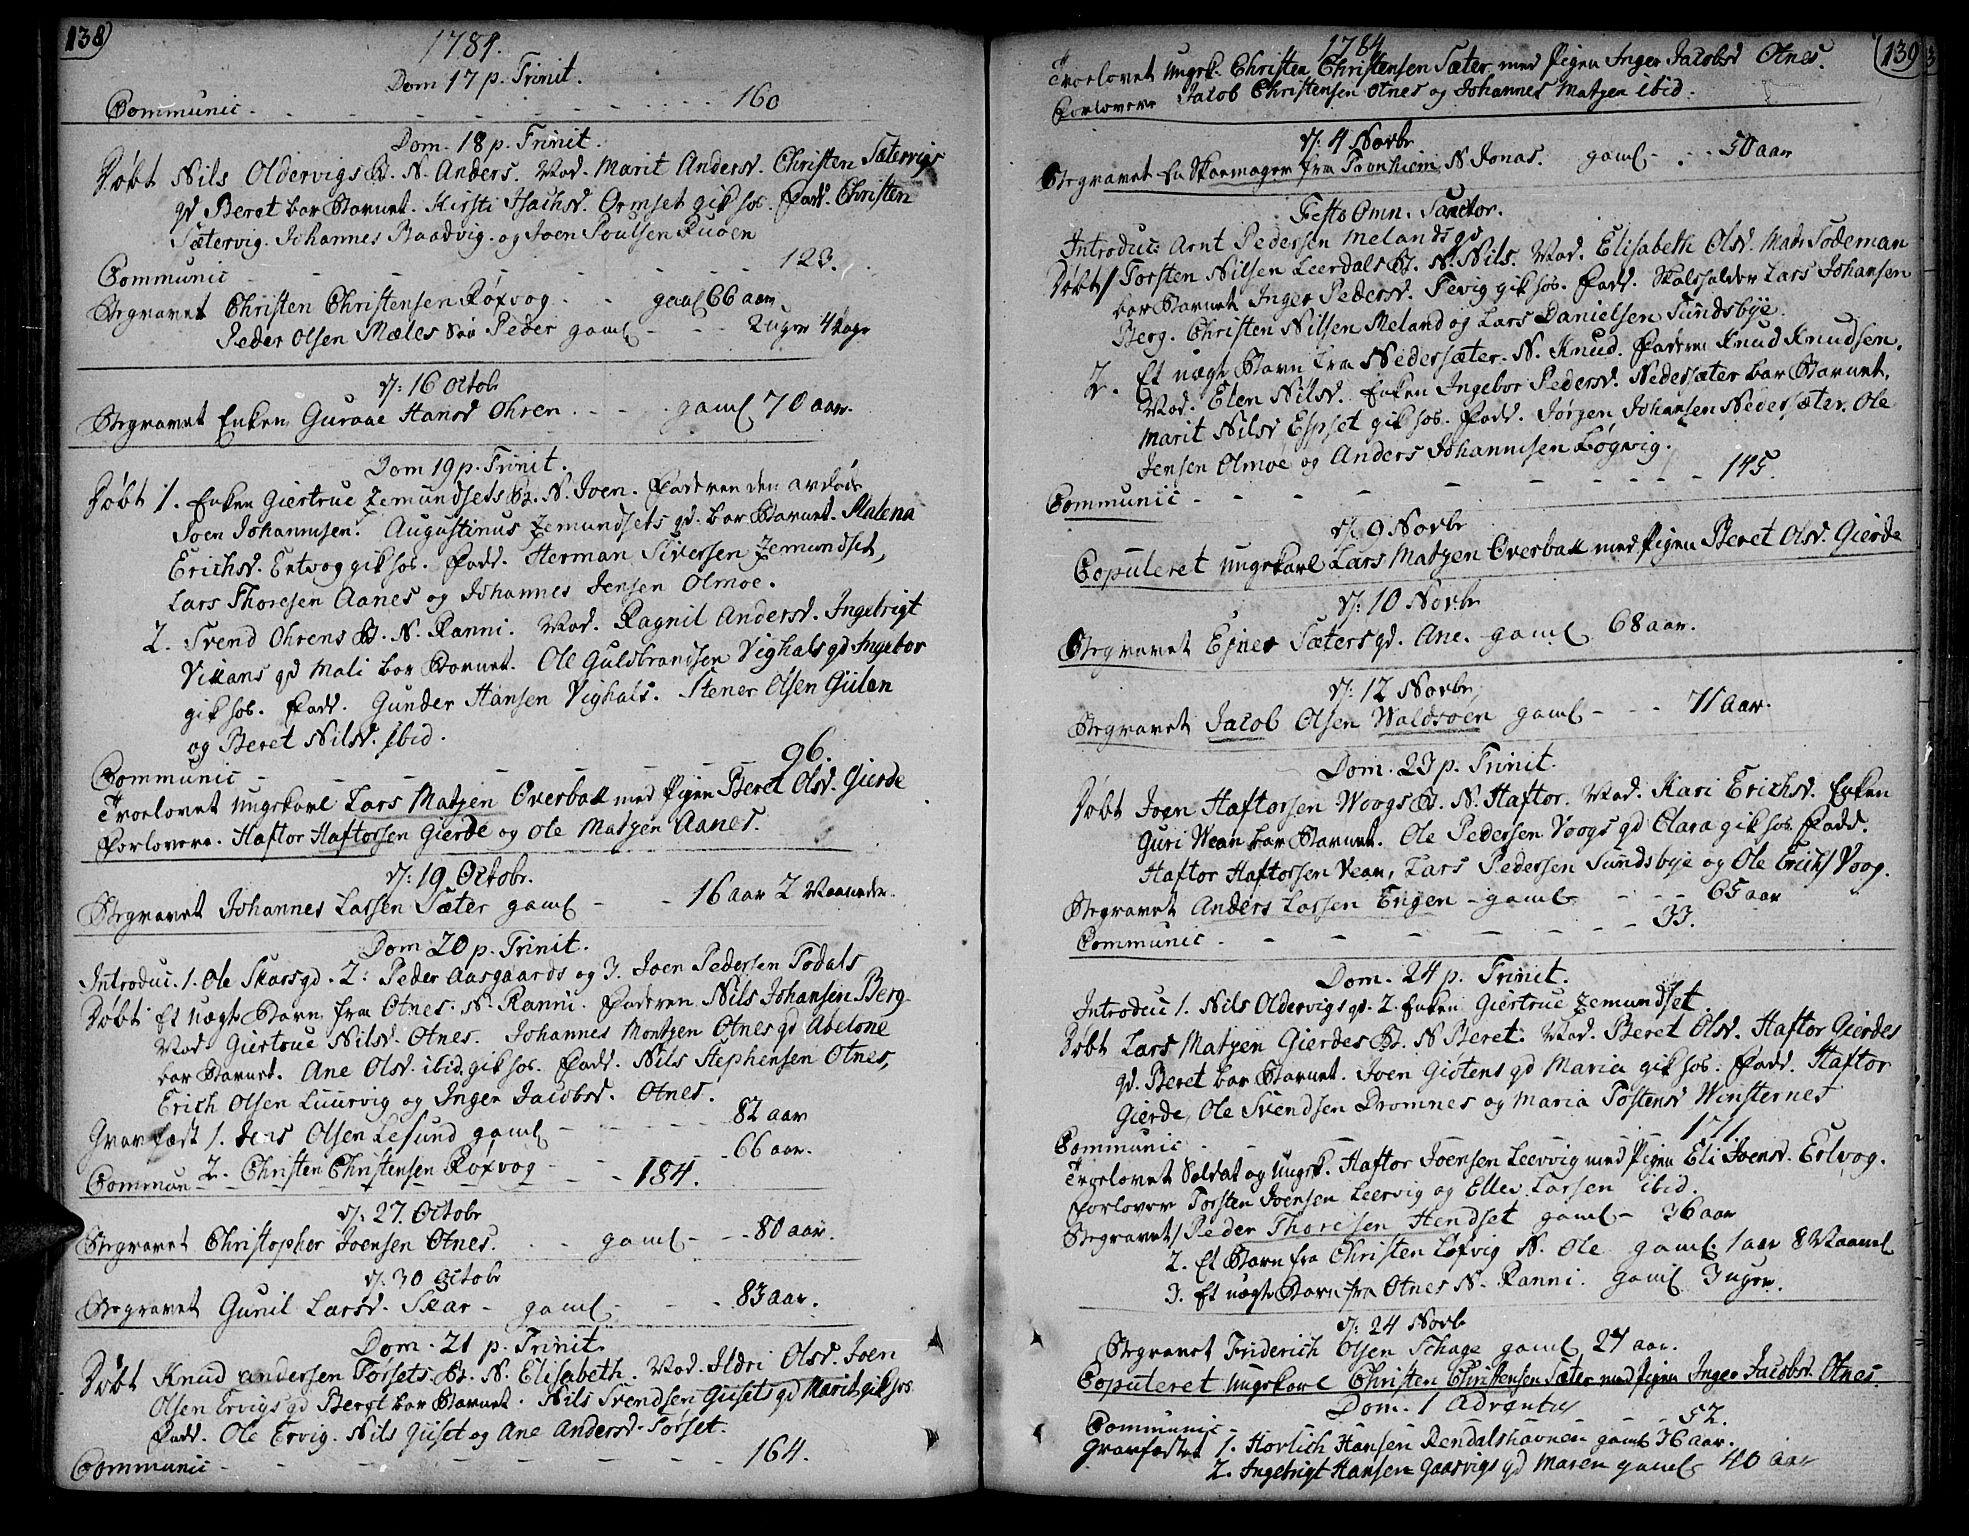 138)
1784.
Dom 17 p. Trinit.
Communic - - - - - - - 160
Dom. 18 p. Trinit.
Døbt Nils Oldervigs B. N. Anders. Mod. Marit Andersd. Christen Sætervigs
qd Beret bar Barnet. Kirsti Isachsd. Ormset gik hos. Fadd. Christen
Sætervig. Johannes Baadvig. og Joen Poulsen Ruøen
Communic - - - - - - - 123.
Begravet Christen Christensen Røxvog - - gaml 66 aar
Peder Olsen Mæles Søn Peder gaml - - - 2 uger 4 dage
d: 16 Octobr
Begravet Enken Guraae Hansd Ohren - - - gaml 70 aar.
Dom 19 p. Trinit.
Døbt 1. Enken Giertrue Zemundsets B. N. Joen. Faderen den avdøde
Joen Johannsen. Augustinus Zemundsets qd. bar Barnet. Malena
Erichsd. Ertvog gik hos. Fadd. Herman Siversen Zemundset,
Lars Thoresen Aanes og Johannes Jensen Olmoe.
2. Svend Ohrens B. N. Ranni. Mod. Ragnil Andersd. Ingebrigt
Vikans qd Mali bar Barnet. Ole Guldbrandsen Vighals qd Ingebor
gik hos. Fadd. Gunder Hansen Vighals. Stener Olsen Giilen
og Beret Nilsd. ibid.
Communic - - - - - - - 96.
Trolovet Ungekarl Lars Matzen Overball med Pigen Beret Olsd. Gierde
Forlovere. Haftor Haftorsen Gierde og Ole Matzen Aanes.
d: 19 Octobr.
Begravet Johannes Larsen Sæter gaml - - 16 aar 2 Maaneder.
Dom 20 p. Trinit.
Introduc. 1. Ole Skars qd. 2: Peder Aasgaards og 3. Joen Pedersen Todals
Døbt Et uægte Barn fra Otnes. N. Ranni. Faderen Nils Johansen Berg.
Mod. Giertrue Nilsd. Otnes. Johannes Montzen Otnes qd Abelone
bar Barnet. Ane Olsd. ibid. gik hos. Fadd. Nils Stephensen Otnes,
Erich Olsen Luurvig og Inger Jacobsd. Otnes.
Gravfæst 1. Jens Olsen Lesund gaml - - - - 82 aar
2. Christen Christensen Røxvog - - - 66 aar.
Commun - - - - - - 184.
d: 27. Octobr
Begravet Christopher Joensen Otnes. - - gaml - - 80 aar.
d. 30 Octobr
Begravet Gunil Larsd. Skar - gaml - - - 83 aar.
Dom. 21 p. Trinit.
Døbt Knud Andersen Torsets. B. N. Elisabeth. Mod. Ildri Olsd. Joen
Olsen Ervigs qd Beret bar Barnet. Nils Svendsen Giisets qd Marit gik hos
Fadd. Ole Ervig. Nils Giiset og Ane Andersd. Torset.
Communic - - - - - - - 164.
1784
(139
Trolovet Ungk. Christen Christensen Sæter med Pigen Inger Jacobsd Otnes.
Forlovere Jacob Christensen Otnes og Johannes Matzen ibid.
d: 4 Novbr
Begravet En Skoemager fra Tronhiem N. Jonas. gaml - - 50 aar
Festo Omn. Sanctor.
Introduc: Arnt Pedersen Melands qd
Døbt 1 Torsten Nilsen Leerdals B. N. Nils. Mod. Elisabeth Olsd. Mads Sødeman
bar Barnet Inger Pedersd. Tevig gik hos. Fadd. Skolholder Lars Johansen
Berg. Christen Nilsen Meland og Lars Danielsen Sundsbye.
2. Et uægte Barn fra Nedersæter. N. Knud. Faderen Knud Knudsen.
Mod. Elen Nilsd. Enken Ingebor Pedersd. Nedersæter bar Barnet.
Marit Nilsd Espset gik hos. Fadd. Jørgen Johansen Nedersæter. Ole
Jensen Olmoe og Anders Johannsen Bøgvig.
Communic - - - - - - - 145.
d: 9 Novbr
Copuleret Ungekarl Lars Matzen Overball med Pigen Beret Olsd. Gierde
d: 10 Novbr
Begravet Esner Sæters qd. Ane. gaml 68 aar.
d: 12 Novbr
Begravet Jacob Olsen Waldsøen gaml - - - 71 aar.
Dom. 23 p. Trinit.
Døbt Joen Haftorsen Woogs B. N. Haftor. Mod. Kari Erichsd. Enken
Guri Wean bar Barnet. Ole Pedersen Voogs qd Clara gik hos. Fadd.
Haftor Haftorsen Vean, Lars Pedersen Sundsbye og Ole Erichs Voog.
Begravet Anders Larsen Engen - gaml - - - 65 aar
Communic - - - - - - - 33.
Dom. 24 p. Trinit.
Introduc 1. Nils Oldervigs qd. 2. Enken Giertrue Zemundset.
Døbt Lars Matzen Gierdes B. N Beret. Mod. Beret Olsd. Haftor Gierdes
qd. Beret bar Barnet. Joen Giøtens qd Maria gik hos: Fadd. Haftor
Gierde, Ole Svendsen Dromnes og Maria Tostensd Winsternes
Communic - - - - - - 171.
Trolovet Soldat og Ungk. Haftor Joensen Leervig med Pigen Eli Joensd. Ertvog.
Forlovere Torsten Joensen Leervig og Ellev Larsen ibid.
Begravet 1 Peder Thoresen Hendset gaml - 36 aar
2. Et Barn fra Christen Løfvig N. Ole gaml. 1 aar 8 Maaned
3. Et uægte Barn fra Otnes N. Ranni. gaml 3 uger.
d: 24 Novb
Begravet Friderich Olsen Schage gaml 27 aar.
Copuleret Ungekarl Christen Christensen Sæter med Pigen Inger Jacobsd. Otnes
Dom. 1 Adventus
Communic - - - - - 52.
Gravfæstet 1. Horlich Hansen Rendalshavnen gaml 36 aar.
2. Ingebrigt Hansen Gaasvigs qd Maren gaml 40 aar